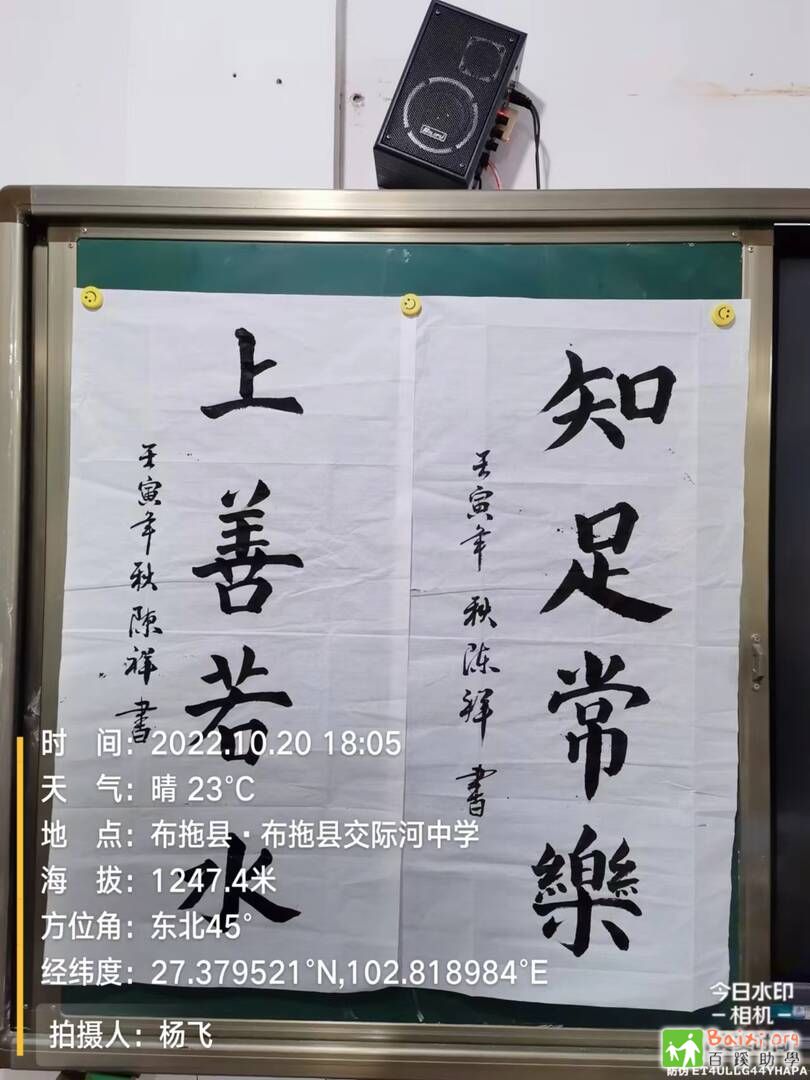 知足常樂
壬寅年秋陈祥書
上善若水
壬寅年秋陳祥書
时间：2022.10.20 18:05
天气：晴 23℃
地点：布拖县·布拖县交际河中学
海拔：1247.4米
方位角：东北45°
经纬度：27.379521°N,102.818984°E
拍摄人：杨飞
今日水印
-相机-
Baixi.org
百蹊助學
防伪 E14ULLG44YHAPA